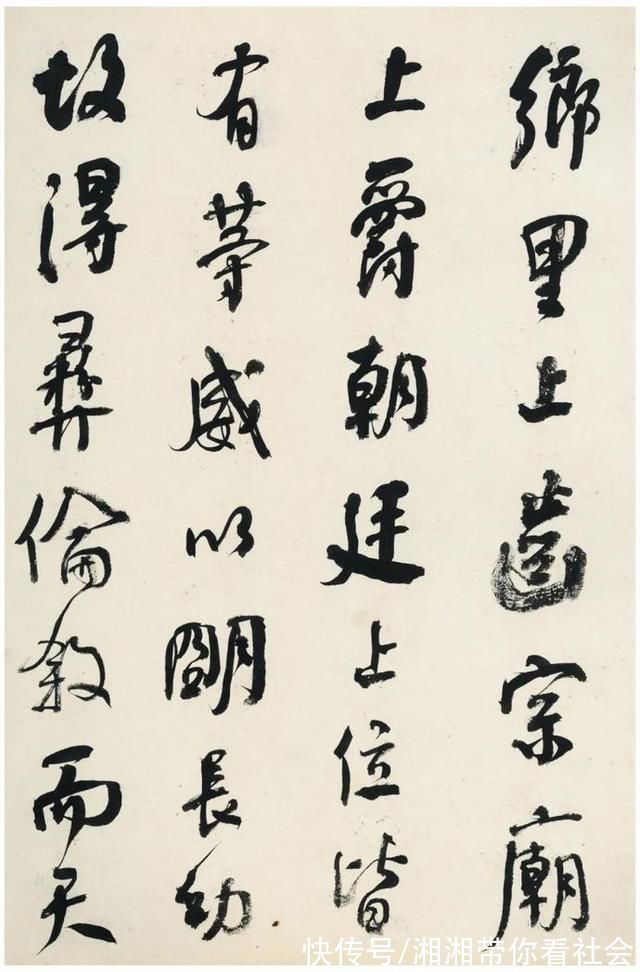 鄉里上齒宗廟
上爵朝廷上位皆
有等威以朙長幼
故得彝倫敘而天
快传号/湘湘带你看社会